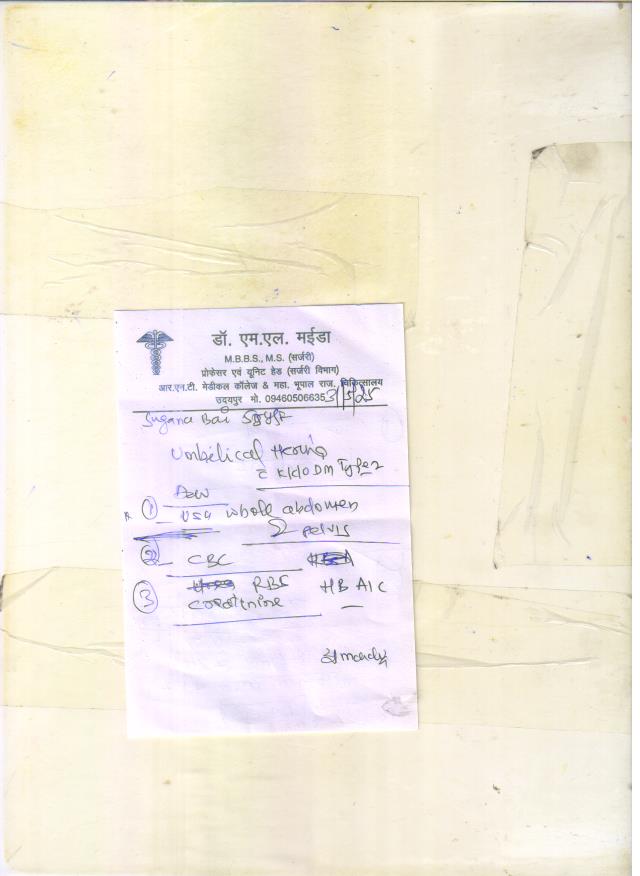 डॉ. एम.एल. मईडा
M.B.B.S., M.S. (सर्जरी)
प्रोफेसर एवं यूनिट हेड (सर्जरी विभाग)
आर.एन.टी. मेडीकल कॉलेज & महा. भूपाल राज. चिकित्सालय
उदयपुर मो. 09460506635 3/5/25
Sugana Bai
Umbilical Hernia
c K/c/o DM Type 2
Adv
① USG whole abdomen
& pelvis
② CBC
③ RBS HBA1C
Creatinine